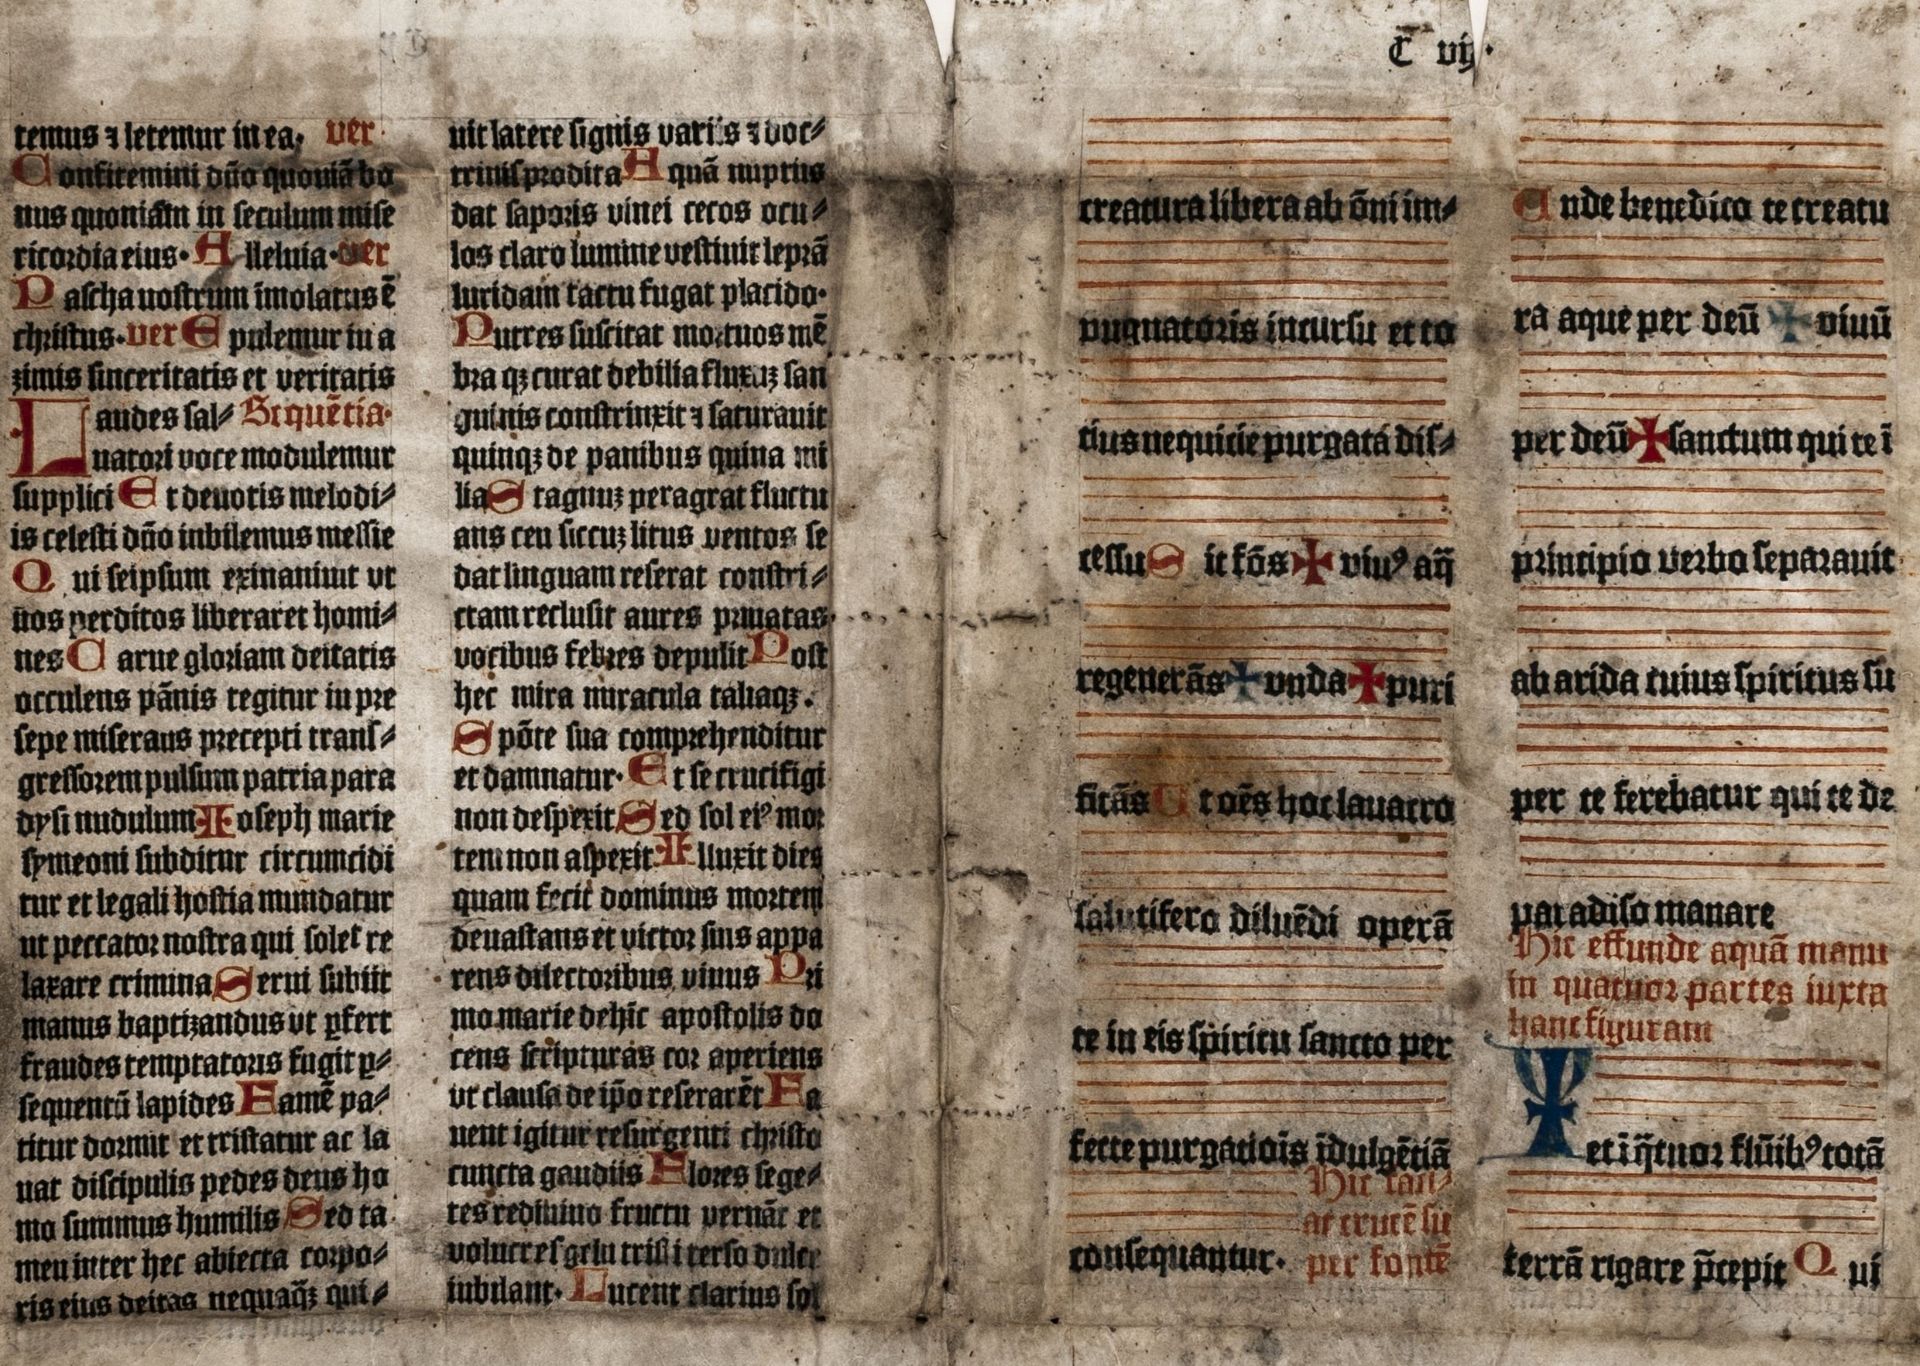 temus ⁊ letemur in ea. ver
Confitemini dño quoniã bo
nus quoniãm in seculum mise
ricordia eius. Alleluia. ver
Pascha nostrum imolatus ē
christus. ver Epulemur in a
zimis sinceritatis et veritatis
Laudes sal⸗ Sequētia.
uatori voce modulemur
supplici Et deuotis melodi⸗
is celesti dño iubilemus messie
Qui seipsum exinaniuit vt
nos perditos liberaret homi⸗
nes Carne gloriam deitatis
occulens pãnis tegitur in pre
sepe miserans precepti trans⸗
gressorem pulsum patria para
dysi nudulum Ioseph marie
symeoni subditur circumcidi
tur et legali hostia mundatur
ut peccator nostra qui solet re
laxare crimina Serui subiit
manus baptizandus vt ꝑfert
fraudes temptatoris fugit ꝑ⸗
sequentū lapides Famē pa⸗
titur dormit et tristatur ac la
uat discipulis pedes deus ho
mo summus humilis Sed ta
men inter hec abiecta corpo⸗
ris eius deitas nequaq̄ꝫ qui⸗
uit latere signis variis ⁊ doc⸗
trinis prodita Aquã nuptiis
dat saporis vinei cecos ocu⸗
los claro lumine vestiuit leprã
luridam tactu fugat placido.
Putres suscitat mortuos mē
bra qꝫ curat debilia fluxuꝫ san
guinis constrinxit ⁊ saturauit
quinqꝫ de panibus quina mi
lia Stagnuꝫ peragrat fluctu
ans ceu siccuꝫ litus ventos se
dat linguam reserat constri⸗
ctam reclusit aures priuatas
vocibus febres depulit Post
hec mira miracula taliaqꝫ.
Spōte sua comprehenditur
et damnatur. Et se crucifigi
non despexit Sed sol eiꝰ mor
tem non aspexit Illuxit dies
quam fecit dominus mortem
deuastans et victor suis appa
rens dilectoribus viuus Pri
mo marie dehīc apostolis do
cens scripturas cor aperiens
vt clausa de ip̄o reserarēt Fa
uent igitur resurgenti christo
cuncta gaudiis Flores sege⸗
tes rediuiuo fructu vernãt et
volucres gelu tristi terso dulce
iubilant. Lucent clarius sol
C vij.
creatura libera ab ōni im⸗
pugnatoris incursu et to
tius nequicie purgata dis⸗
cessu Sit fōs ✠ viuꝰ aq̄
regenerãs ✠ vnda ✠ puri
ficãs Ut oēs hoc lauacro
salutifero diluēdi operã
te in eis spiritu sancto per
fecte purgatiōis īdulgētiã
Hic tan⸗
at crucē su
consequantur. per fontē
Unde benedico te creatu
ra aque per deū ✠ viuū
per deū ✠ sanctum qui te ī
principio verbo separauit
ab arida cuius spiritus su
per te ferebatur qui te de
paradiso manare
Hic effunde aquã manu
in quatuor partes iuxta
hanc figuram
✠
et ī q̄tuor flūibꝰ totã
terrã rigare p̄cepit Qui